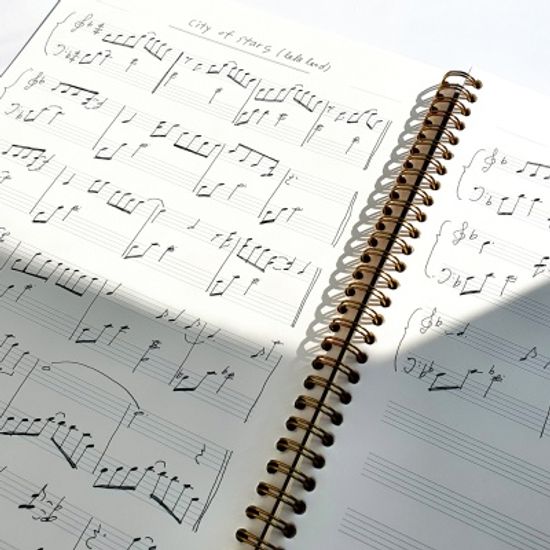 City of Stars (La La Land)